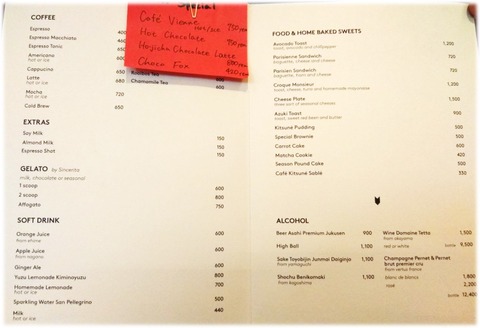 Special
Café Vienna Hot/ICE 750yen
Hot Chocolate 750yen
Hojicha Chocolate Latte 800yen
Choco Fox 420yen
COFFEE
Espresso 400
Espresso Macchiato 460
Espresso Tonic
Americano
hot or ice
Cappucino
Latte
hot or ice 680
Mocha
hot or ice 720
Cold Brew 650
Chamomile Tea
EXTRAS
Soy Milk 150
Almond Milk 150
Espresso Shot 150
GELATO by Sincerita
milk, chocolate or seasonal
1 scoop 600
2 scoop 800
Affogato 750
SOFT DRINK
Orange Juice 600
from ehime
Apple Juice 600
from nagano
Ginger Ale 600
Yuzu Lemonade Kiminoyuzu 800
Homemade Lemonade 700
hot or ice
Sparkling Water San Pellegrino 500
Milk 440
hot or ice
FOOD & HOME BAKED SWEETS
Avocado Toast 1,200
toast, avocado and chillipepper
Parisienne Sandwich 720
baguette, cheese and cheese
Parisien Sandwich 720
baguette, ham and cheese
Croque Monsieur 1,200
toast, cheese, tuna and homemade mayonnaise
Cheese Plate 1,500
three sort of seasonal cheeses
Azuki Toast 900
toast, sweet red bean and butter
Kitsune Pudding 500
Special Brownie 500
Carrot Cake 600
Matcha Cookie 420
Season Pound Cake 500
Café Kitsuné Sablé 350
ALCOHOL
Beer Asahi Premium Jukusen 900
High Ball 1,100
Sake Toyobijin Junmai Daiginjo 1,100
from yamaguchi
Shochu Benikomaki 1,100
from kagoshima
Wine Domaine Tetta 1,500
from okayama
red or white bottle 9,500
Champagne Pernet & Pernet
brut premier cru
from vertus france
blanc de blancs 1,800
rosé 2,200
bottle 12,400